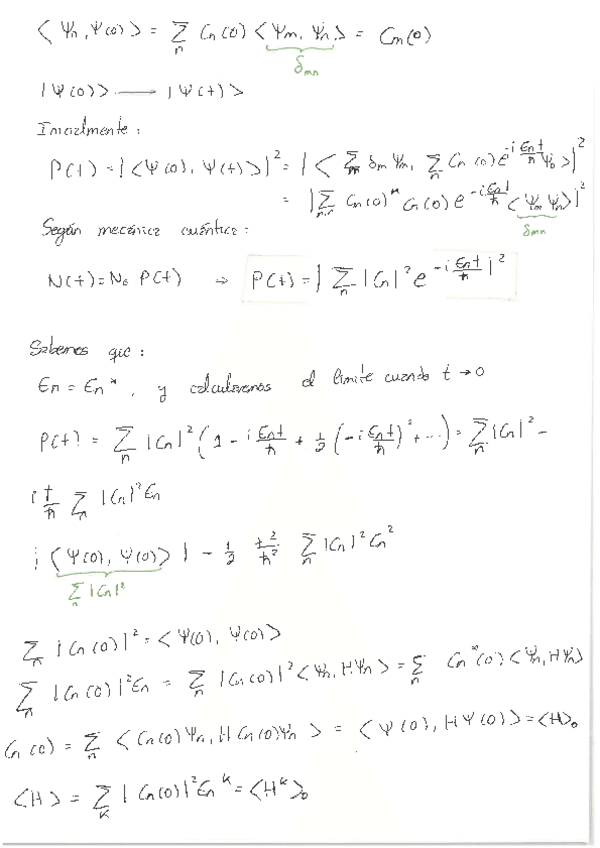 ⟨Ψn, Ψ(0)⟩ = Σn Cn(0) ⟨Ψm, Ψn⟩ = Cm(0)
δmn
|Ψ(0)⟩ → |Ψ(t)⟩
Inicialmente:
P(t) = |⟨Ψ(0), Ψ(t)⟩|² = |⟨Σm δm Ψm, Σn Cn(0) e^(-i Ent/ħ) Ψn⟩|²
= |Σ Cm(0)* Cn(0) e^(-i Ent/ħ) ⟨Ψm Ψn⟩|²
δmn
Según mecánica cuántica:
N(t) = N₀ P(t) ⇒ P(t) = |Σn |Cn|² e^(-i Ent/ħ)|²
Sabemos que:
En = En*, y calcularemos el límite cuando t → 0
P(t) = Σn |Cn|² (1 - i Ent/ħ + ½ (-i Ent/ħ)² + ...) = Σn |Cn|² -
i t/ħ Σn |Cn|² En
¡ ⟨Ψ(0), Ψ(0)⟩ | - ½ t²/ħ² Σn |Cn|² Cn²
Σn |Cn|²
Σn |Cn(0)|² = ⟨Ψ(0), Ψ(0)⟩
Σn |Cn(0)|² En = Σn |Cn(0)|² ⟨Ψn, HΨn⟩ = Σn Cn*(0) ⟨Ψn, HΨn⟩
Cn(0) = Σn ⟨Cn(0)Ψn, H Cn(0)Ψn⟩ = ⟨Ψ(0), HΨ(0)⟩ = ⟨H⟩₀
⟨H⟩ = Σk |Cn(0)|² En^k = ⟨H^k⟩₀